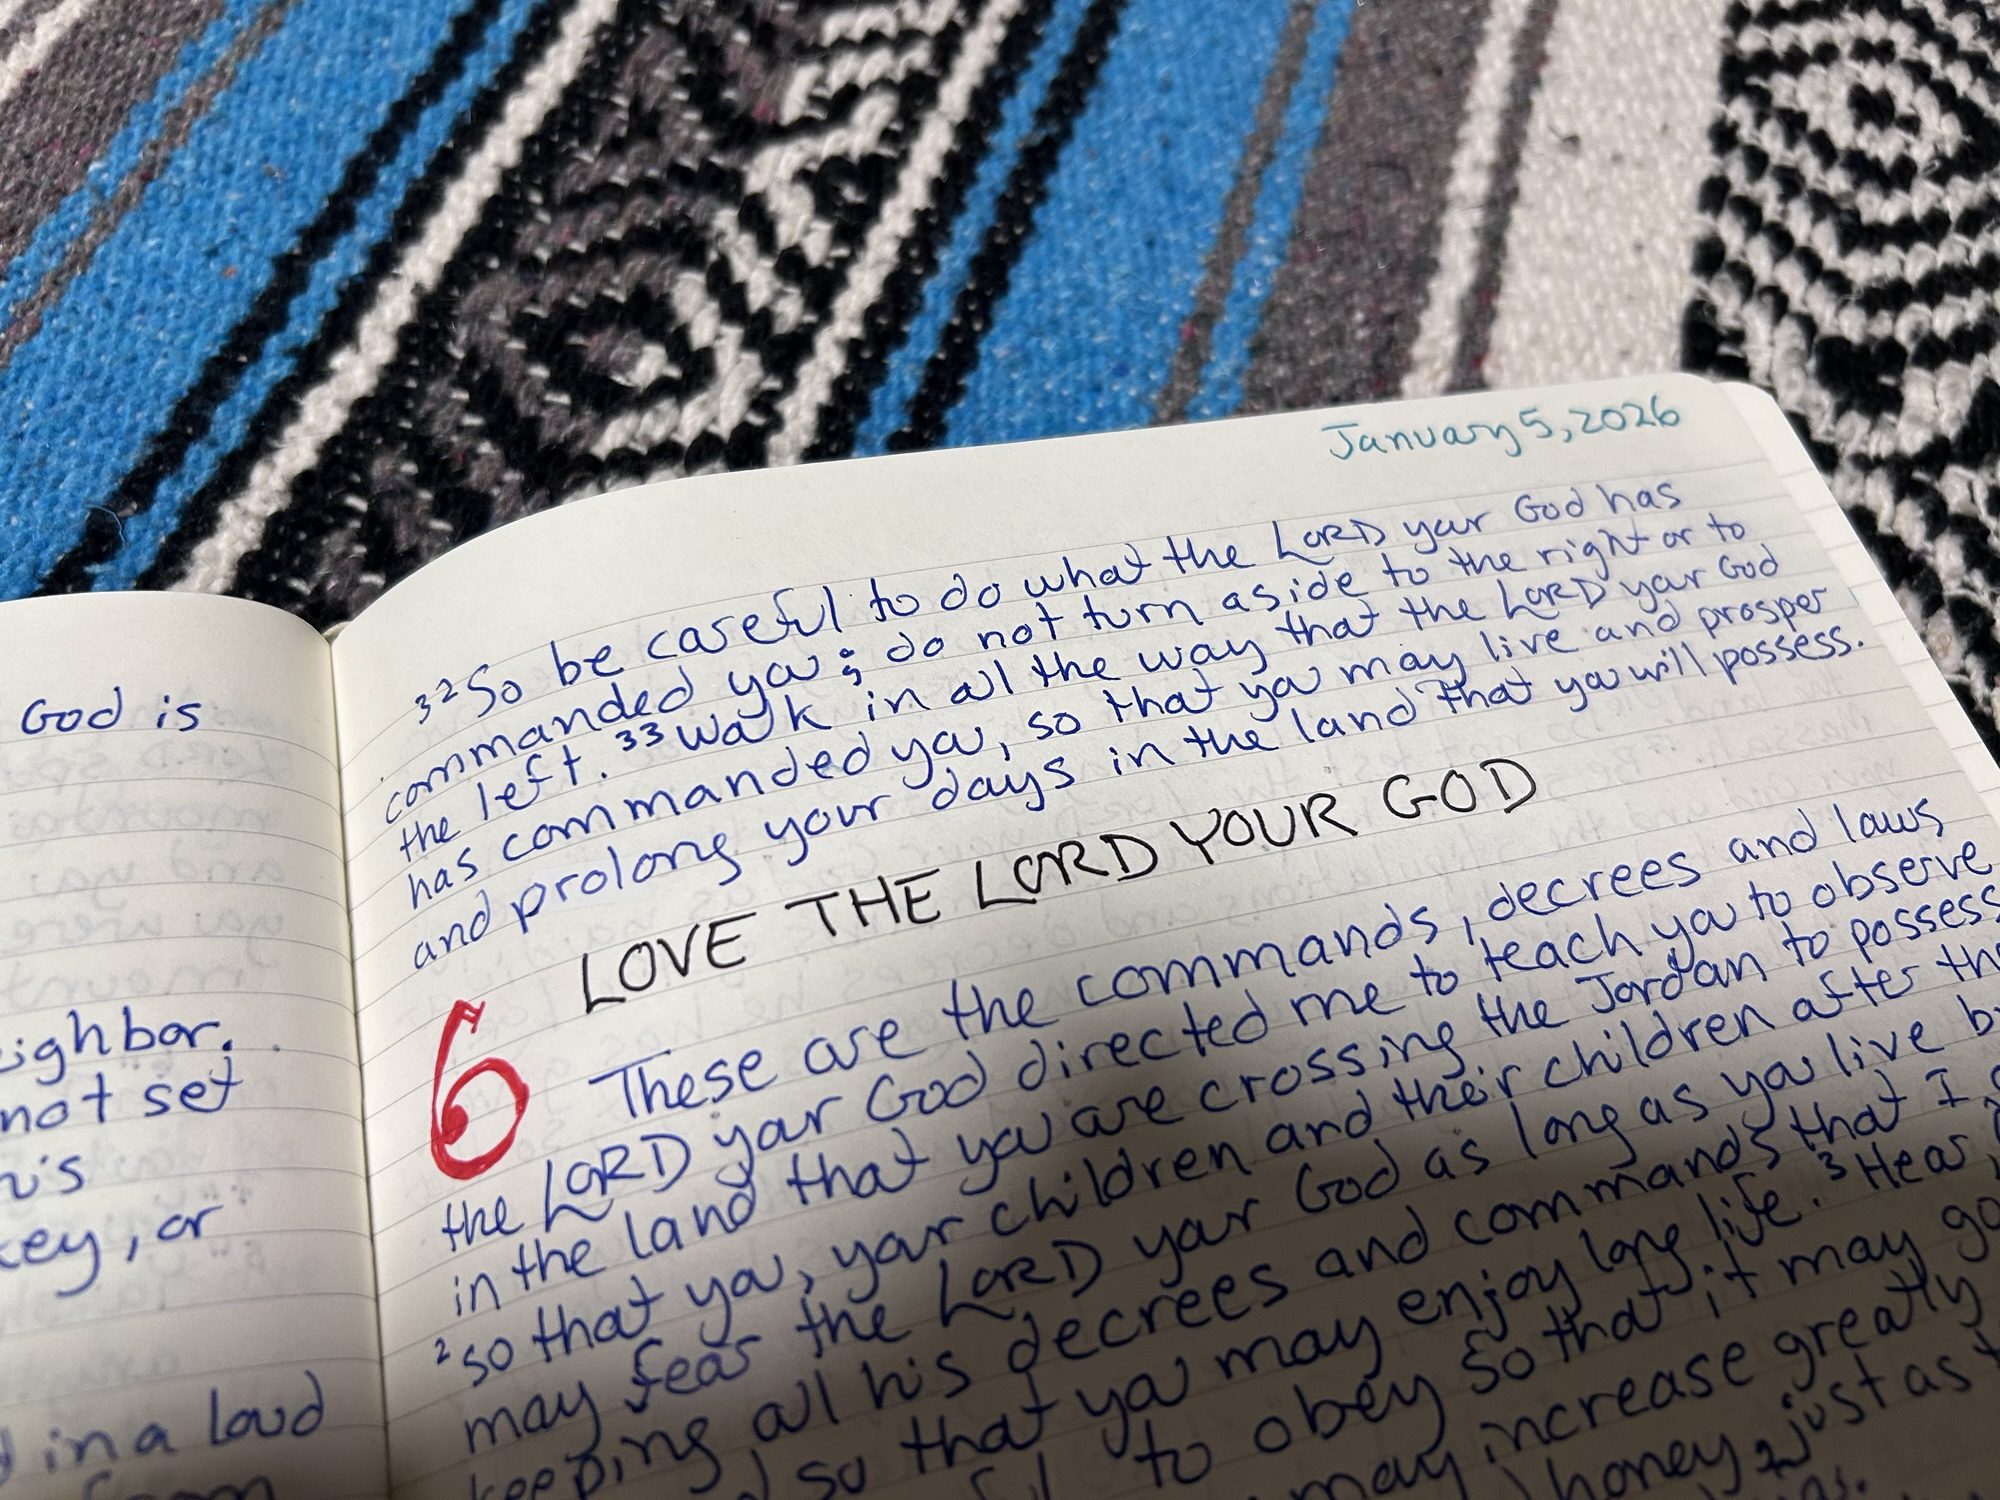 God is
ighbor.
not set
his
key, or
in a loud
from
January 5, 2026
32 So be careful to do what the LORD your God has
commanded you; do not turn aside to the right or to
the left. 33 Walk in all the way that the LORD your God
has commanded you, so that you may live and prosper
and prolong your days in the land that you will possess.
LOVE THE LORD YOUR GOD
6 These are the commands, decrees and laws
the LORD your God directed me to teach you to observe
in the land that you are crossing the Jordan to possess
2 so that you, your children and their children after th
may fear the LORD your God as long as you live by
keeping all his decrees and commands that I
so that you may enjoy long life. 3 Hear,
to obey so that it may go
may increase greatly
honey, just as t